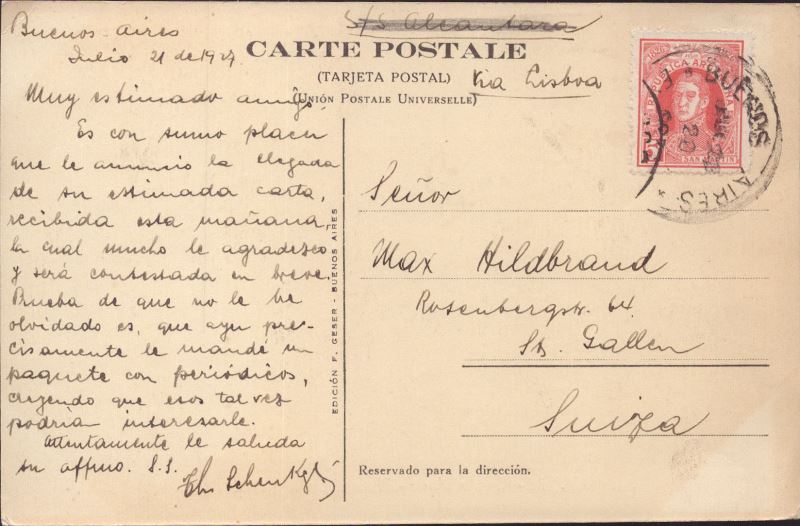 Buenos Aires
Julio 21 de 1927
S/S Alcantara
CARTE POSTALE
(TARJETA POSTAL)
Via Lisboa
(UNIÓN POSTALE UNIVERSELLE)
Muy estimado amigo:
Es con sumo placer
que le anuncio la llegada
de su estimada carta,
recibida esta mañana,
la cual mucho le agradezco
y será contestada en breve.
Prueba de que no le he
olvidado es, que ayer pre-
cisamente le mandé un
paquete con periódicos,
creyendo que esos tal vez
podría interesarle.
Atentamente le saluda
su affmo. S.S.
EDICIÓN F. GESER - BUENOS AIRES
REPUBLICA ARGENTINA
SAN MARTIN
BUENOS AIRES
20
Señor
Max Hildbrand
Rosenbergstr. 64.
St. Gallen
Suiza
Reservado para la dirección.